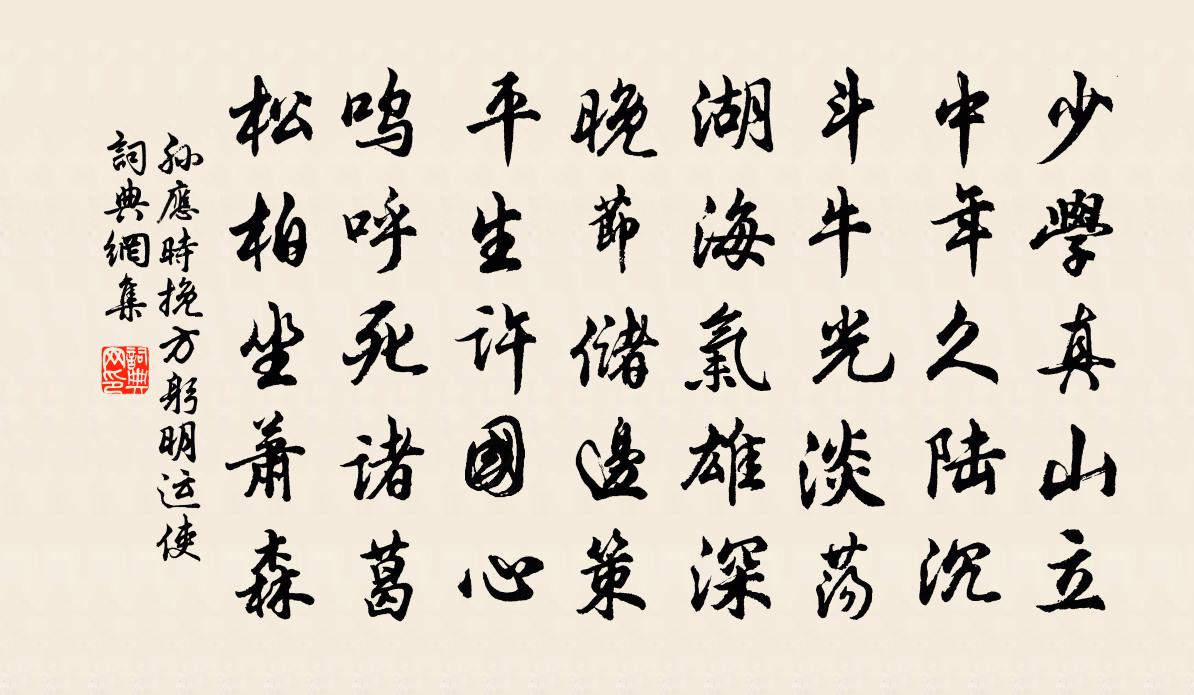 少學真山立
中年久陆沉
斗牛光淡荡
湖海氣雄深
晚節儲邊策
平生許國心
呜呼死诸葛
松柏坐萧森
孙應時挽方躬明运使
詞典網集
詞典网印